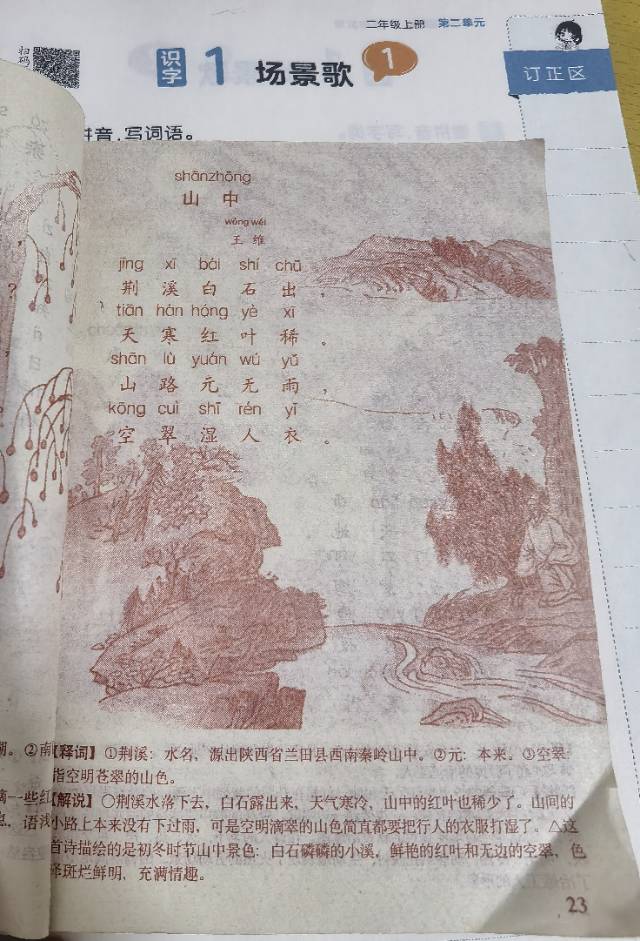 二年级上册 第二单元
识字 1 场景歌 1
订正区
拼音,写词语。
shānzhōng
山中
wáng wéi
王维
jīng xī bái shí chū
荆溪白石出,
tiān hán hóng yè xī
天寒红叶稀。
shān lù yuán wú yǔ
山路元无雨,
kōng cuì shī rén yī
空翠湿人衣。
②南
【释词】①荆溪:水名,源出陕西省兰田县西南秦岭山中。②元:本来。③空翠:
指空明苍翠的山色。
一些红
【解说】○荆溪水落下去,白石露出来,天气寒冷,山中的红叶也稀少了。山间的
语浅
小路上本来没有下过雨,可是空明滴翠的山色简直都要把行人的衣服打湿了。△这
首诗描绘的是初冬时节山中景色:白石磷磷的小溪,鲜艳的红叶和无边的空翠,色
泽斑烂鲜明,充满情趣。
23